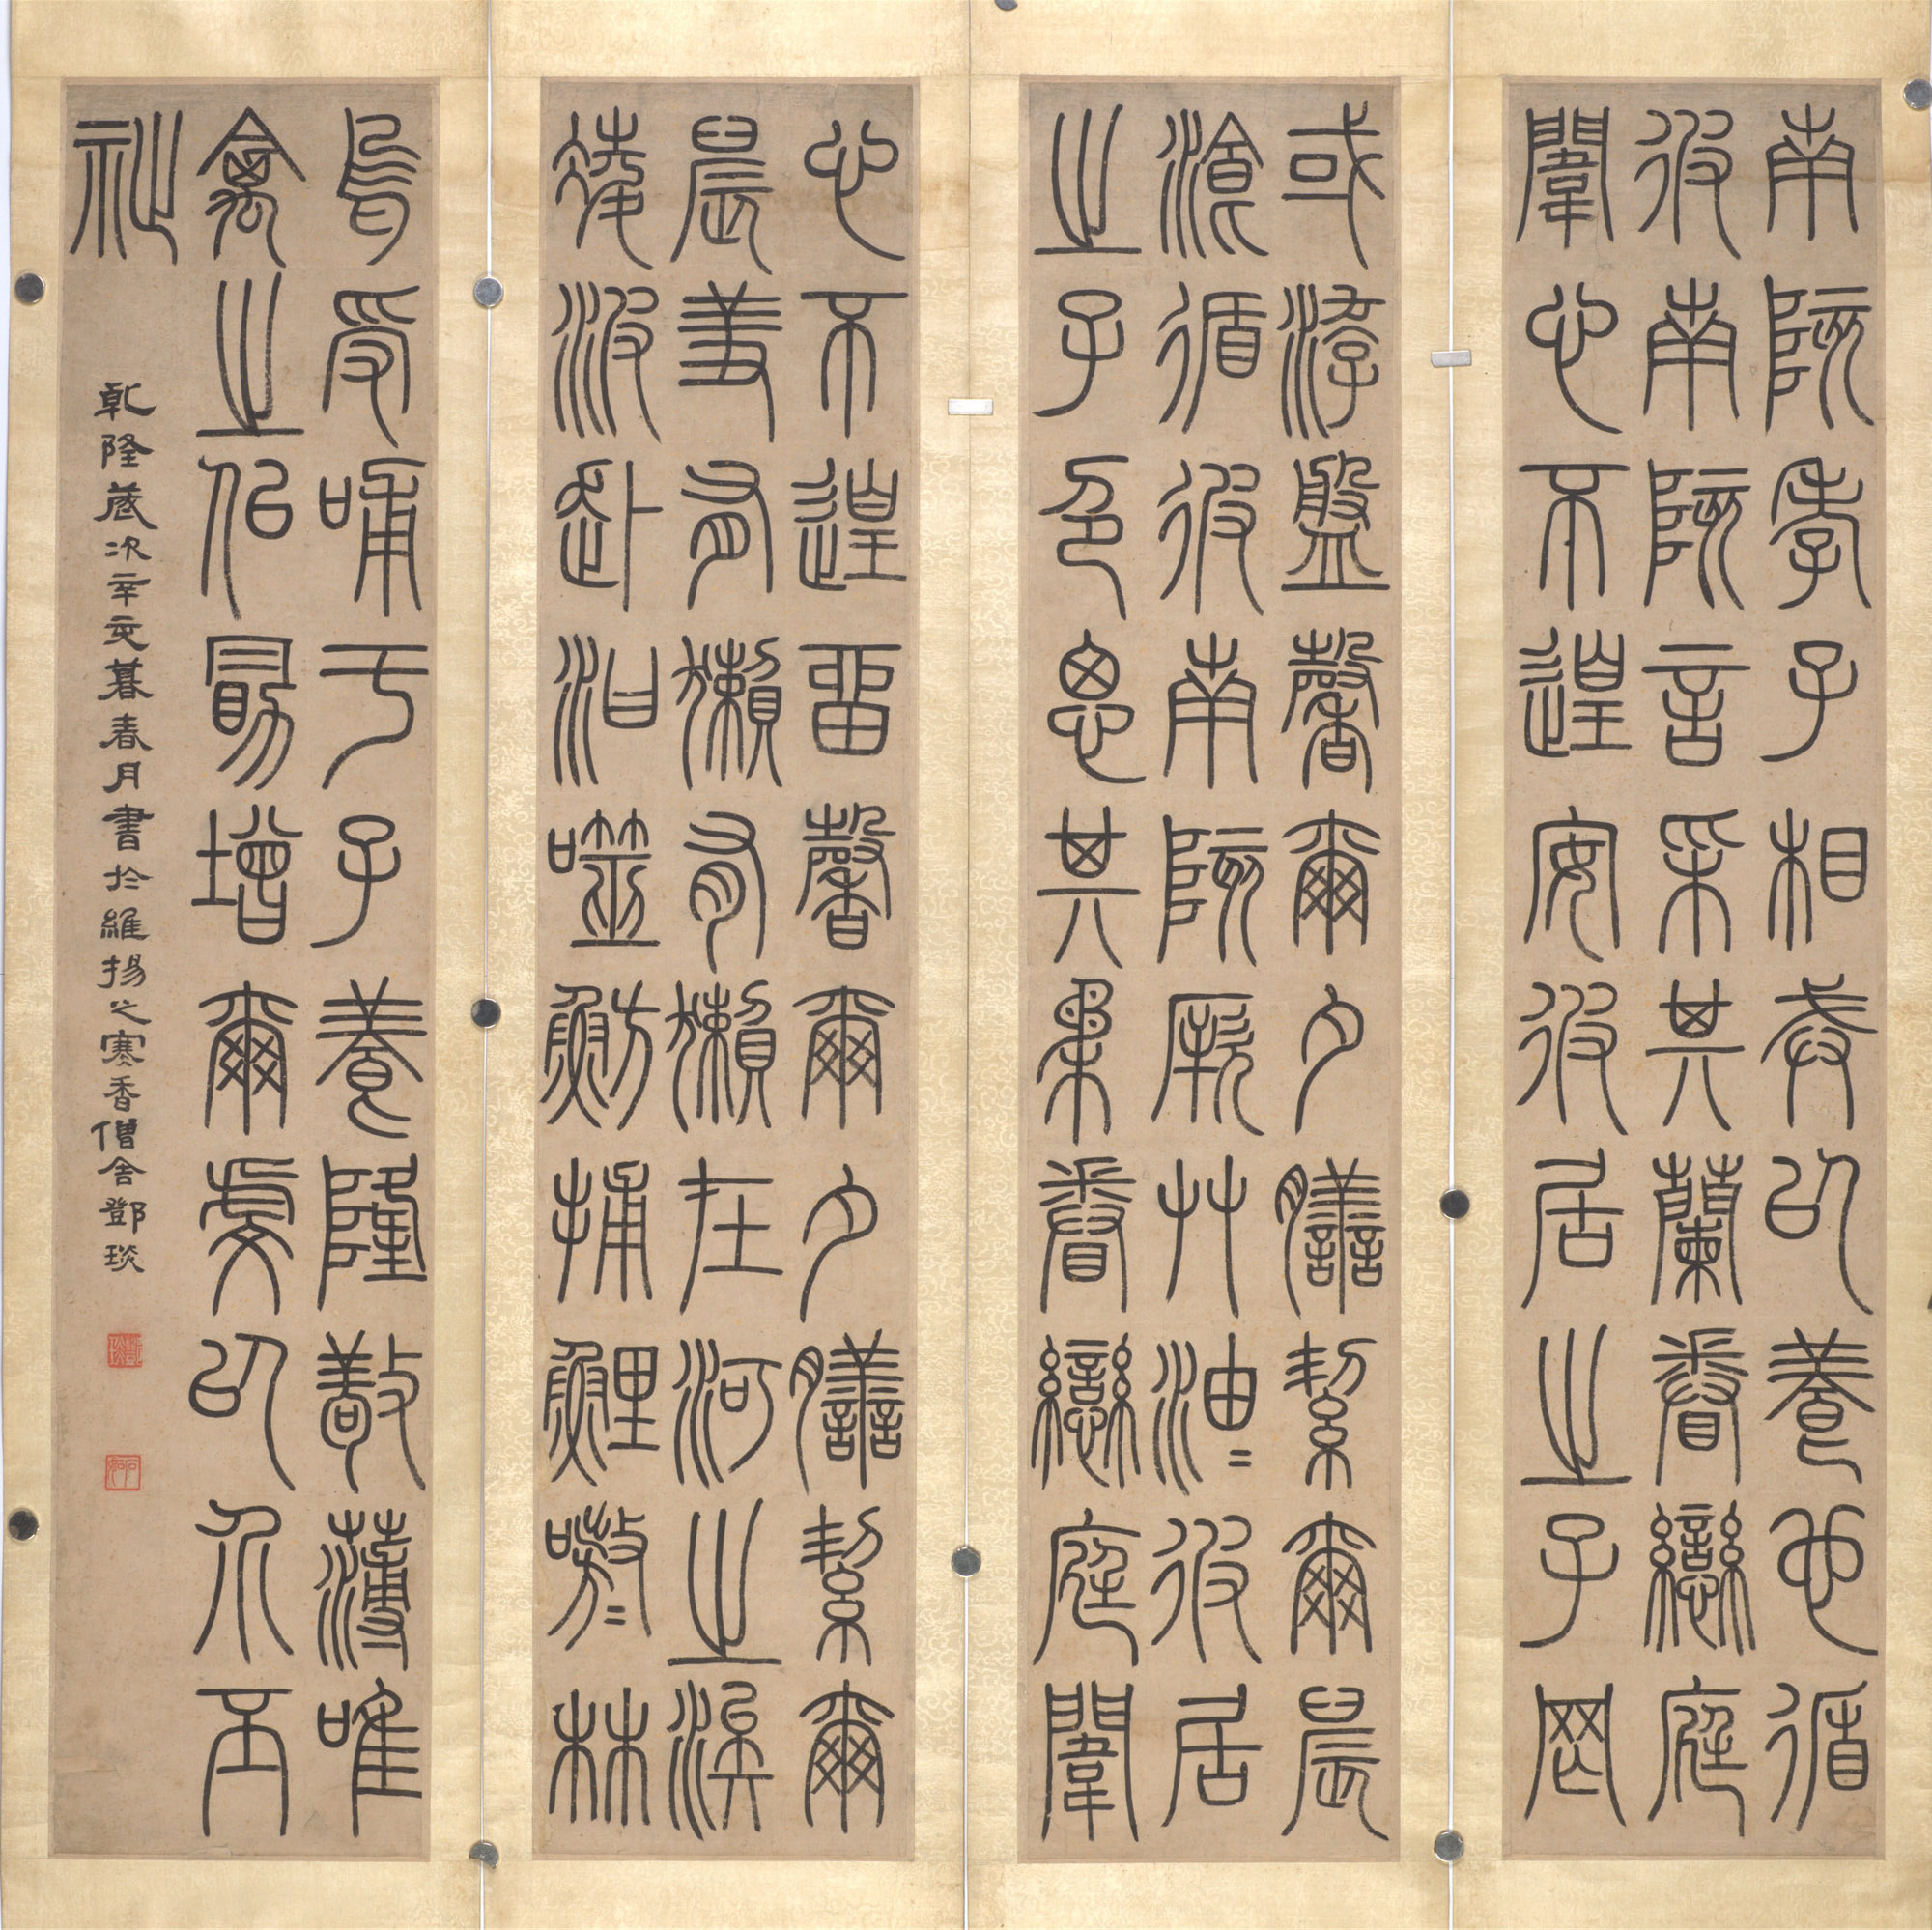 南陔孝子相戒以養也循
彼南陔言采其蘭眷戀庭
闈心不遑安彼居之子罔
或游盤馨爾夕膳絜爾晨
湌循彼南陔厥艸油〻彼居
之子色思其柔眷戀庭闈
心不遑留馨爾夕膳絜爾
晨羞有獺有獺在河之涘
凌波赴汨噬魴捕鯉嗷〻林
烏受哺于子養隆敬薄唯
禽之佀勖增爾虔以介丕
祉
乾隆歲次辛亥暮春月書於維揚之寒香僧舍鄧琰
鄧琰
石如